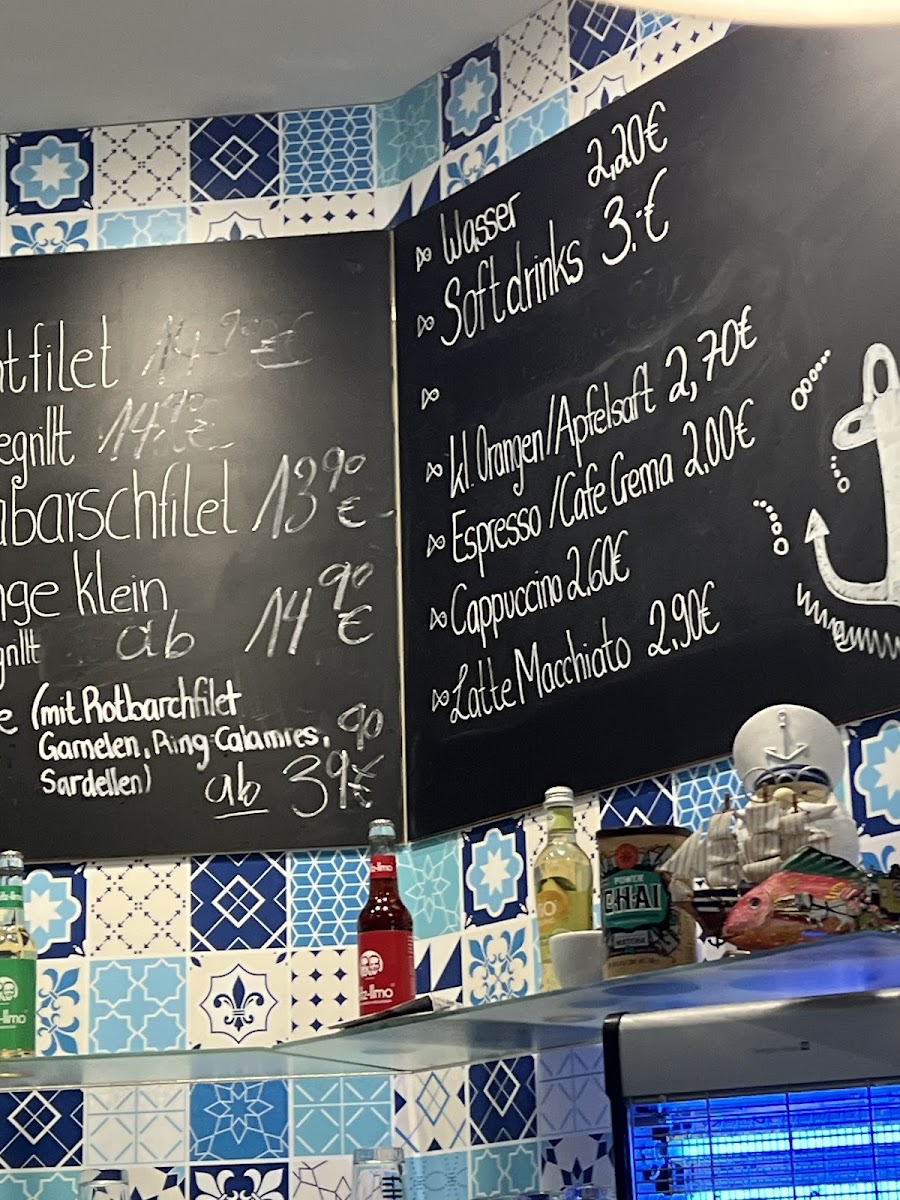 tfilet 14,90 €
egrillt 14,90 €
barschfilet 13 90 €
nge klein
grillt ab 14 90 €
e (mit Rotbarchfilet
Garnelen, Ring Calamres,
Sardellen) ab 39 90 €
Wasser 2,20€
Softdrinks 3.-€
kl. Orangen/Apfelsaft 2,70€
Espresso/Cafe Crema 2.00€
Cappuccino 2.60€
Latte Macchiato 2.90€
POWER
CHAI
MATCHA
z-limo
z-limo